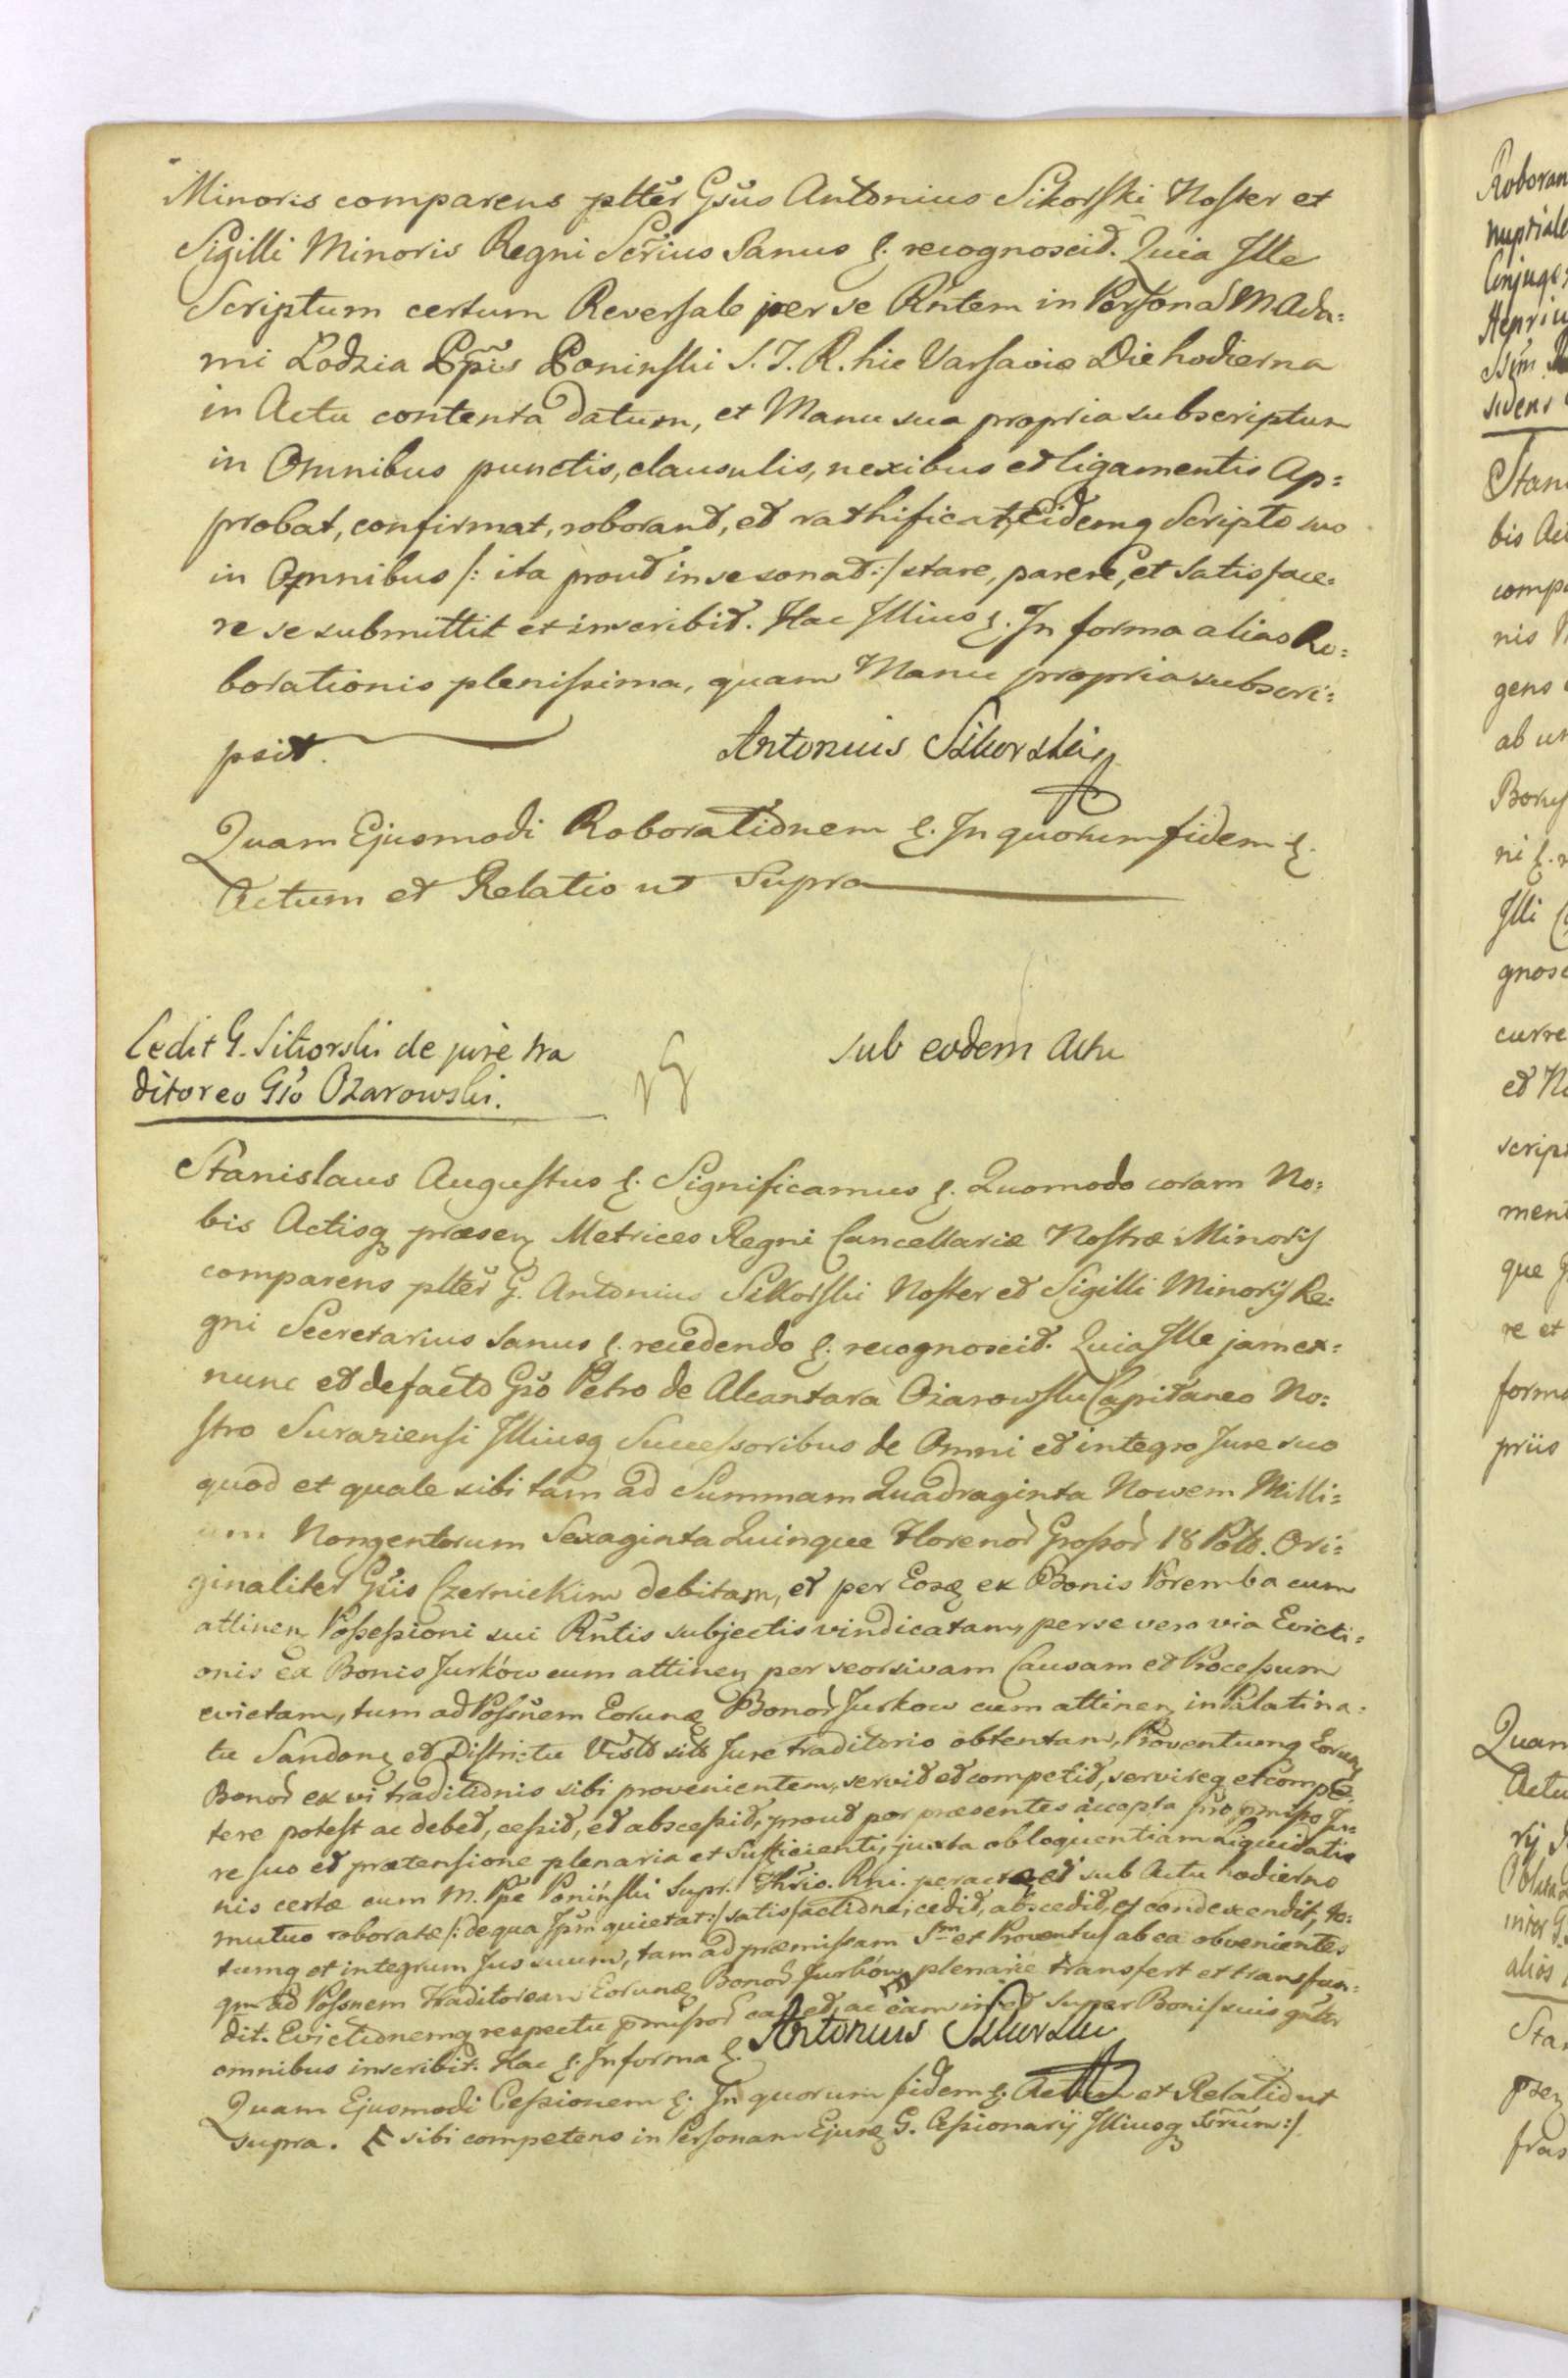 Minoris comparens plter Gsus Antonius Sikorski Noster et
Sigilli Minoris Regni Scrius Sanus &. recognoscit. Quia Ille
Scriptum certum Reversale per se Rntem in Persona M Ada=
mi Lodzia Ppis Poninski S. I. R. hic Varsaviæ Die hodierna
in Actu contenta datum, et Manu sua propria subscriptum
in Omnibus punctis, clausulis, nexibus et ligamentis Ap=
probat, confirmat, roborand, et rathificat, Eidemq Scripto suo
in Omnibus /: ita prout in se sonat :/ stare, parere, et satisface=
re se submittit et inscribit. Hac Illius &. In forma alias Ro=
borationis plenissima, quam Manu propria subscri=
psit. Antonius Sikorski
Quam Ejusmodi Roborationem &. In quorum fidem &.
Actum et Relatio ut Supra
Cedit G. Sikorski de jure tra
ditoreo Gso Ożarowski.
sub eodem Actu
Stanislaus Augustus &. Significamus &. Quomodo coram No=
bis Actisq præsen Metrices Regni Cancellariæ Nostræ Minoris
comparens plter G. Antonius Sikorski Noster et Sigilli Minoris Re=
gni Secretarius Sanus &. recedendo &. recognoscit. Quia Ille jam ex=
nunc et de facto Gso Petro de Alcantara Ożarowski Capitaneo No=
stro Suraziensi Illiusq Successoribus de Omni et integro Jure suo
quod et quale sibi tam ad Summam Quadraginta Nowem Milli=
um Nongentorum Sexaginta Quinque Florenor Grossor 18 Polo. Ori=
ginaliter Gsis Czernickim debitam, et per Eosq ex Bonis Poremba cum
attinen Possessioni sui Rntis subjectis vindicatam, per se vero via Evicti=
onis ex Bonis Jurków cum attinen per seorsivam Causam et Processum
evictam, tum ad Possnem Eorunq Bonor Jurkow cum attinen in Palatina=
tu Sandom et Districtu Visl sitt Jure traditorio obtentam, Proventumq Eorun
Bonor ex vi traditionis sibi provenientem, servit et competit, servireq et compe=
tere potest ac debet, cessit, et abscessit, prout per præsentes accepta pro præmisso Ju=
re suo et prætensione plenaria et sufficienti, juxta obloquentiam Liquidatio
nis certæ cum M. Ppe Poniński Supr. Thsrio. Rni. peractæ, et sub Actu hodierno
mutuo roboratæ /: de qua Ipm quietat :/ satisfactione, cedit, abscedit, et condescendit, to=
tumq et integrum Jus suum, tam ad præmissam Smm et Proventus ab ea obvenientes
qm ad Possnem traditoream Eorunq Bonor Jurków plenarie transfert et transfun=
dit. Evictionemq respectu præmissor cavet, ac eam in et super Bonis suis gnter
omnibus inscribit. Hac &. In forma &. Antonius Sikorski
Quam Ejusmodi Cessionem &. In quorum fidem &. Actum et Relatio ut
supra. F sibi competens in Personam Ejusq G. Cessionarij Illiusq Scrum :/